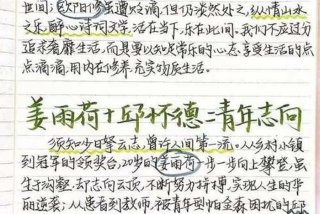 世间；欧阳修虽遭贬谪，但仍淡然处之，纵情山水
之乐，醉心诗词文学。活在当下，乐在此间。我们不应过分
追求奢靡生活，而具要以知足常乐的心态，享受生活的点
点滴滴，用内在修养充实物质生活。
姜雨荷+邱怀德：青年志向
须知少日拏云志，曾许人间第一流。从乡村小镇
到冠军的领奖台，20岁的姜雨荷一步一步向上攀登，虽
生于沟壑，却志向云顶，不断努力拼搏，实现人生的华
丽逆袭；从患者到教师，被青年型帕金森困扰的